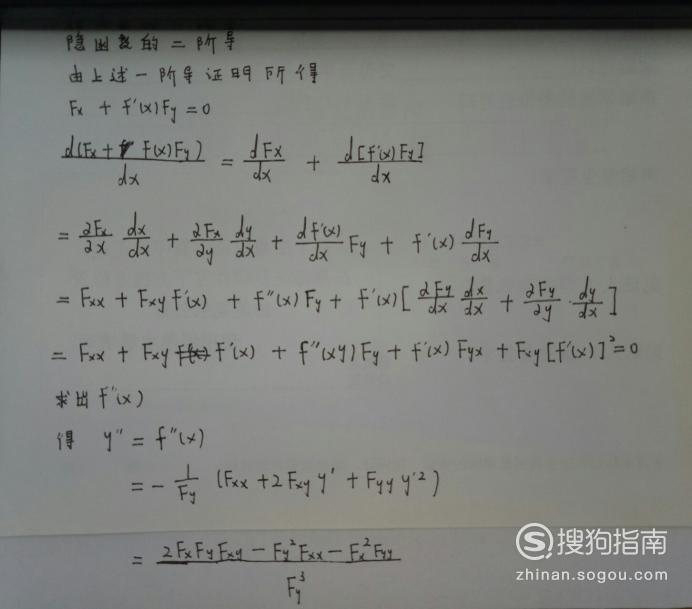 隐函数的二阶导
由上述一阶导证明所得
Fx + f'(x)Fy = 0
d(Fx + f'(x)Fy)/dx = dFx/dx + d[f'(x)Fy]/dx
= ∂Fx/∂x dx/dx + ∂Fx/∂y dy/dx + df'(x)/dx Fy + f'(x) dFy/dx
= Fxx + Fxy f'(x) + f''(x)Fy + f'(x)[∂Fy/dx dx/dx + ∂Fy/∂y · dy/dx]
= Fxx + Fxy f'(x) + f''(xy)Fy + f'(x)Fyx + Fxy[f'(x)]²=0
求出f''(x)
得 y'' = f''(x)
= - 1/Fy (Fxx + 2Fxy y' + Fyy y'²)
= (2FxFyFxy - Fy²Fxx - Fx²Fyy)/Fy³
S 搜狗指南
zhinan.sogou.com